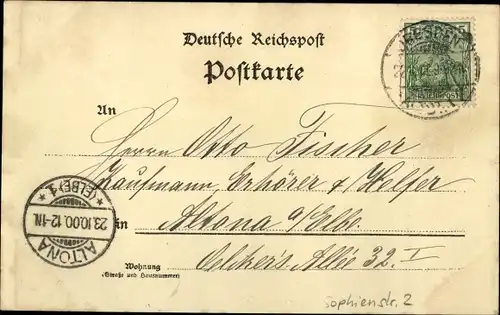 Deutsche Reichspost
Postkarte
An
Herrn Otto Fischer
Kaufmann, Erhörer & Helfer
in Altona a/Elbe.
Oelkers Allée 32. I
Wohnung
(Straße und Hausnummer)
Sophienstr. 2
DRESDEN
ALTONA
23.10.00.12-1N.
* (ELBE) 1 *